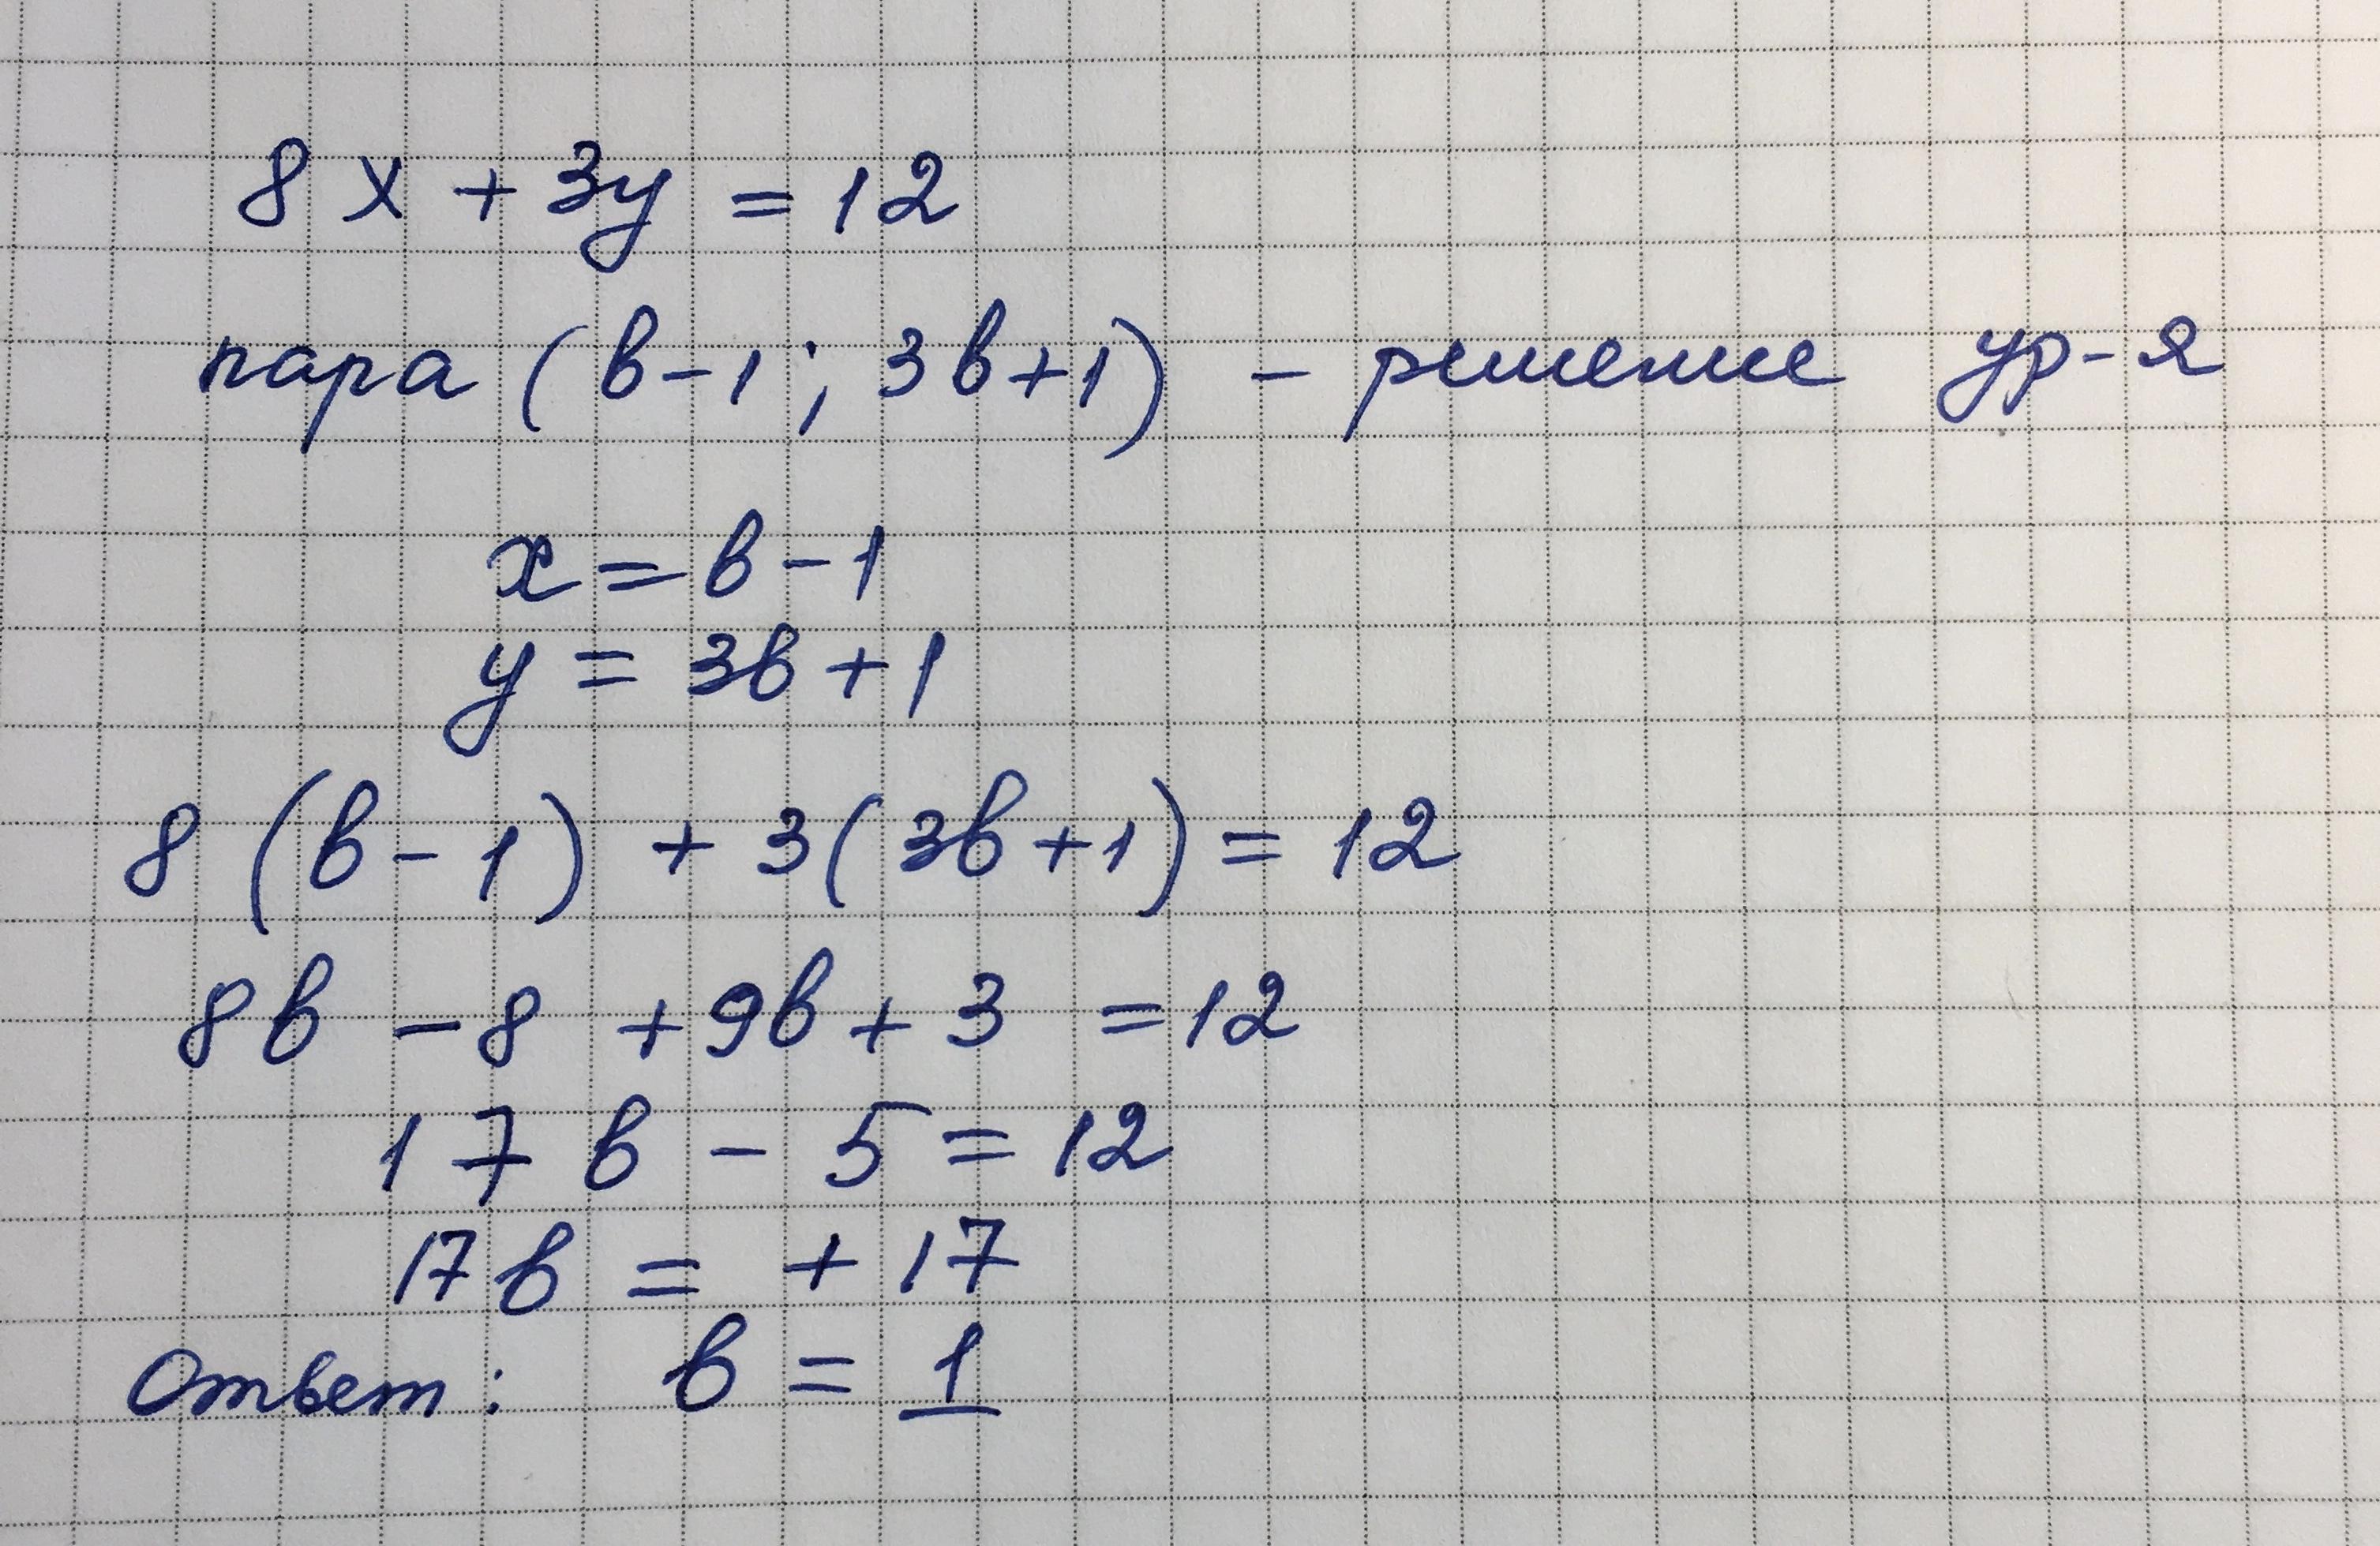 8x + 3y = 12
пара (b-1; 3b+1) - решение ур-я
x = b - 1
y = 3b + 1
8 (b - 1) + 3(3b+1) = 12
8b - 8 + 9b + 3 = 12
17b - 5 = 12
17b = + 17
Ответ: b = 1